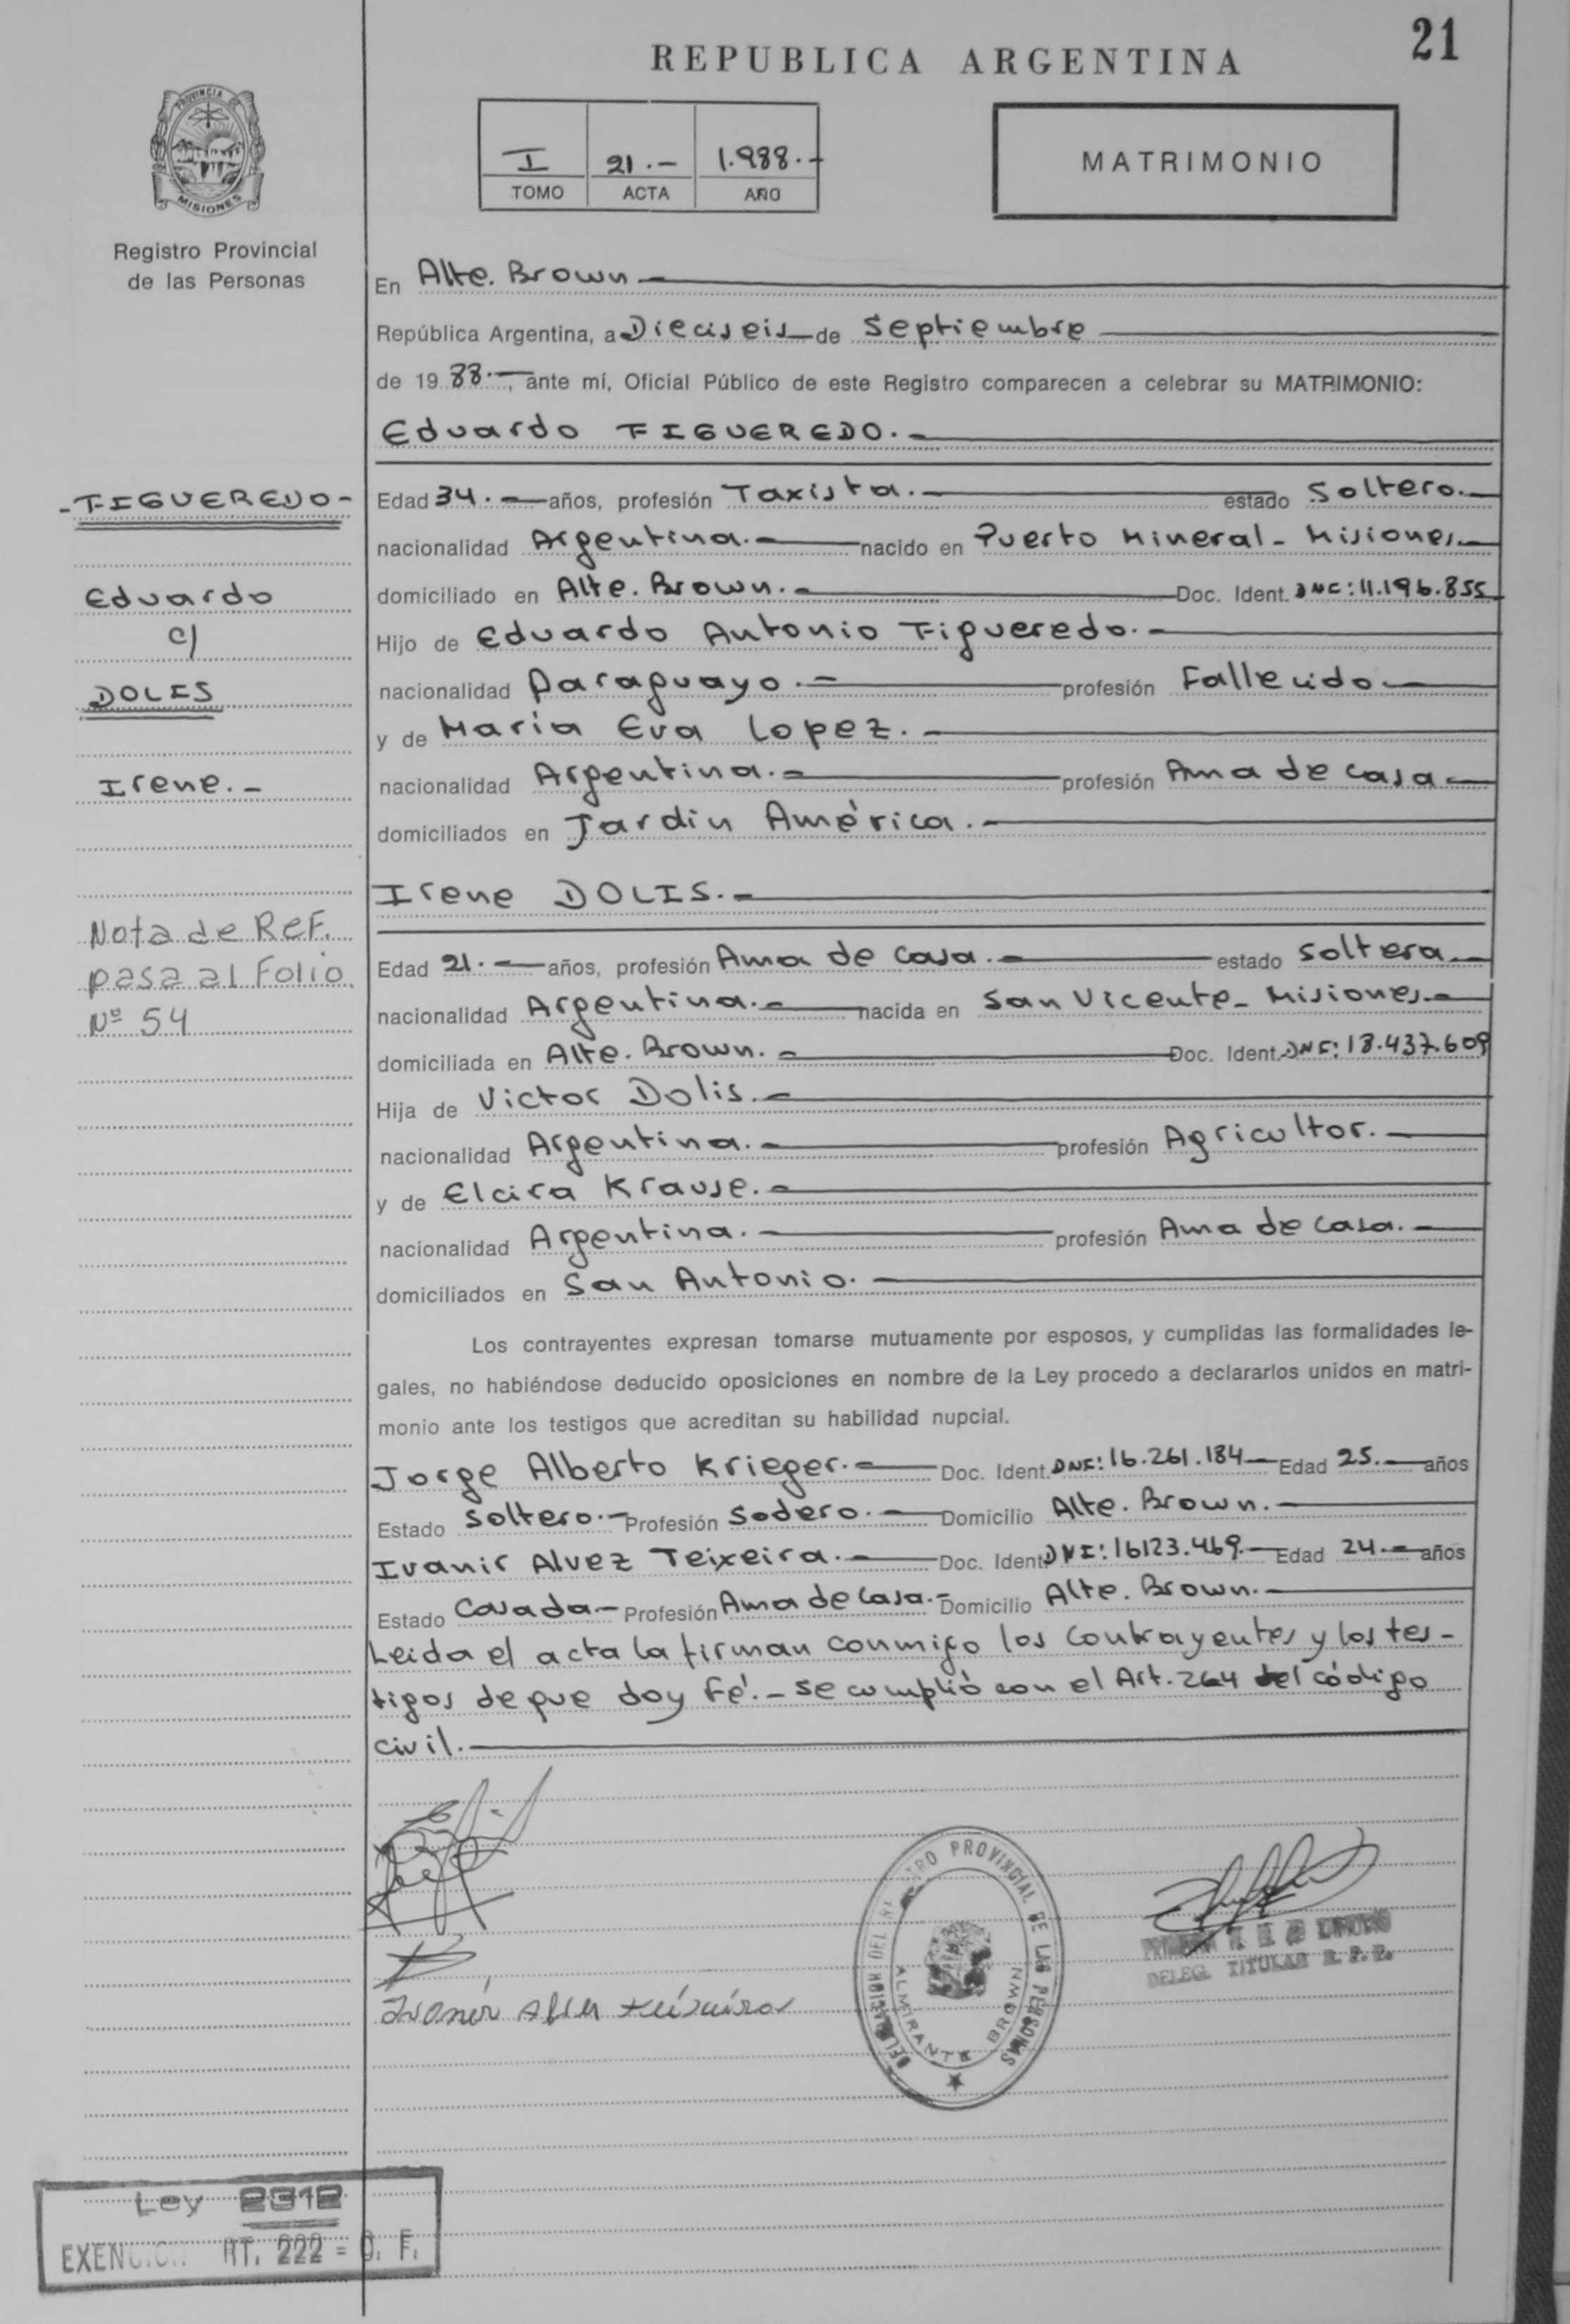 21
REPUBLICA ARGENTINA
PROVINCIA DE
MISIONES
I 21.- 1.988.-
TOMO ACTA AÑO
MATRIMONIO
Registro Provincial
de las Personas
En Alte. Brown
República Argentina, a Dieciseis de Septiembre
de 19 88.-, ante mí, Oficial Público de este Registro comparecen a celebrar su MATRIMONIO:
Eduardo FIGUEREDO.-
-FIGUEREDO-
Eduardo
c/
DOLIS
Irene.-
Nota de Ref.
pasa al Folio
Nº 54
Edad 34.- años, profesión Taxista.- estado Soltero.-
nacionalidad Argentina.- nacido en Puerto Mineral - Misiones.-
domiciliado en Alte. Brown.- Doc. Ident. DNI: 11.196.855
Hijo de Eduardo Antonio Figueredo.-
nacionalidad Paraguayo.- profesión Fallecido.-
y de Maria Eva Lopez.-
nacionalidad Argentina.- profesión Ama de casa.-
domiciliados en Jardín América.-
Irene DOLIS.-
Edad 21.- años, profesión Ama de casa.- estado Soltera.-
nacionalidad Argentina.- nacida en San Vicente - Misiones.-
domiciliada en Alte. Brown.- Doc. Ident. DNI: 18.437.609
Hija de Victor Dolis.-
nacionalidad Argentina.- profesión Agricultor.-
y de Elcira Krause.-
nacionalidad Argentina.- profesión Ama de casa.-
domiciliados en San Antonio.-
Los contrayentes expresan tomarse mutuamente por esposos, y cumplidas las formalidades le-
gales, no habiéndose deducido oposiciones en nombre de la Ley procedo a declararlos unidos en matri-
monio ante los testigos que acreditan su habilidad nupcial.
Jorge Alberto Krieger.- Doc. Ident. DNI: 16.261.184 Edad 25.- años
Estado Soltero.- Profesión Sodero.- Domicilio Alte. Brown.-
Ivanir Alvez Teixeira.- Doc. Ident DNI: 16123.469.- Edad 24.- años
Estado Casada- Profesión Ama de casa.- Domicilio Alte. Brown.-
Leida el acta la firman conmigo los contrayentes y los tes-
tigos de que doy fé.- Se cumplió con el Art. 264 del código
civil.-
PROVINCIAL DE LAS PERSONAS
ALMIRANTE BROWN
DELEG. TITULAR R. P. P.
Ley 2312
EXENCION ART. 222 = C. F.